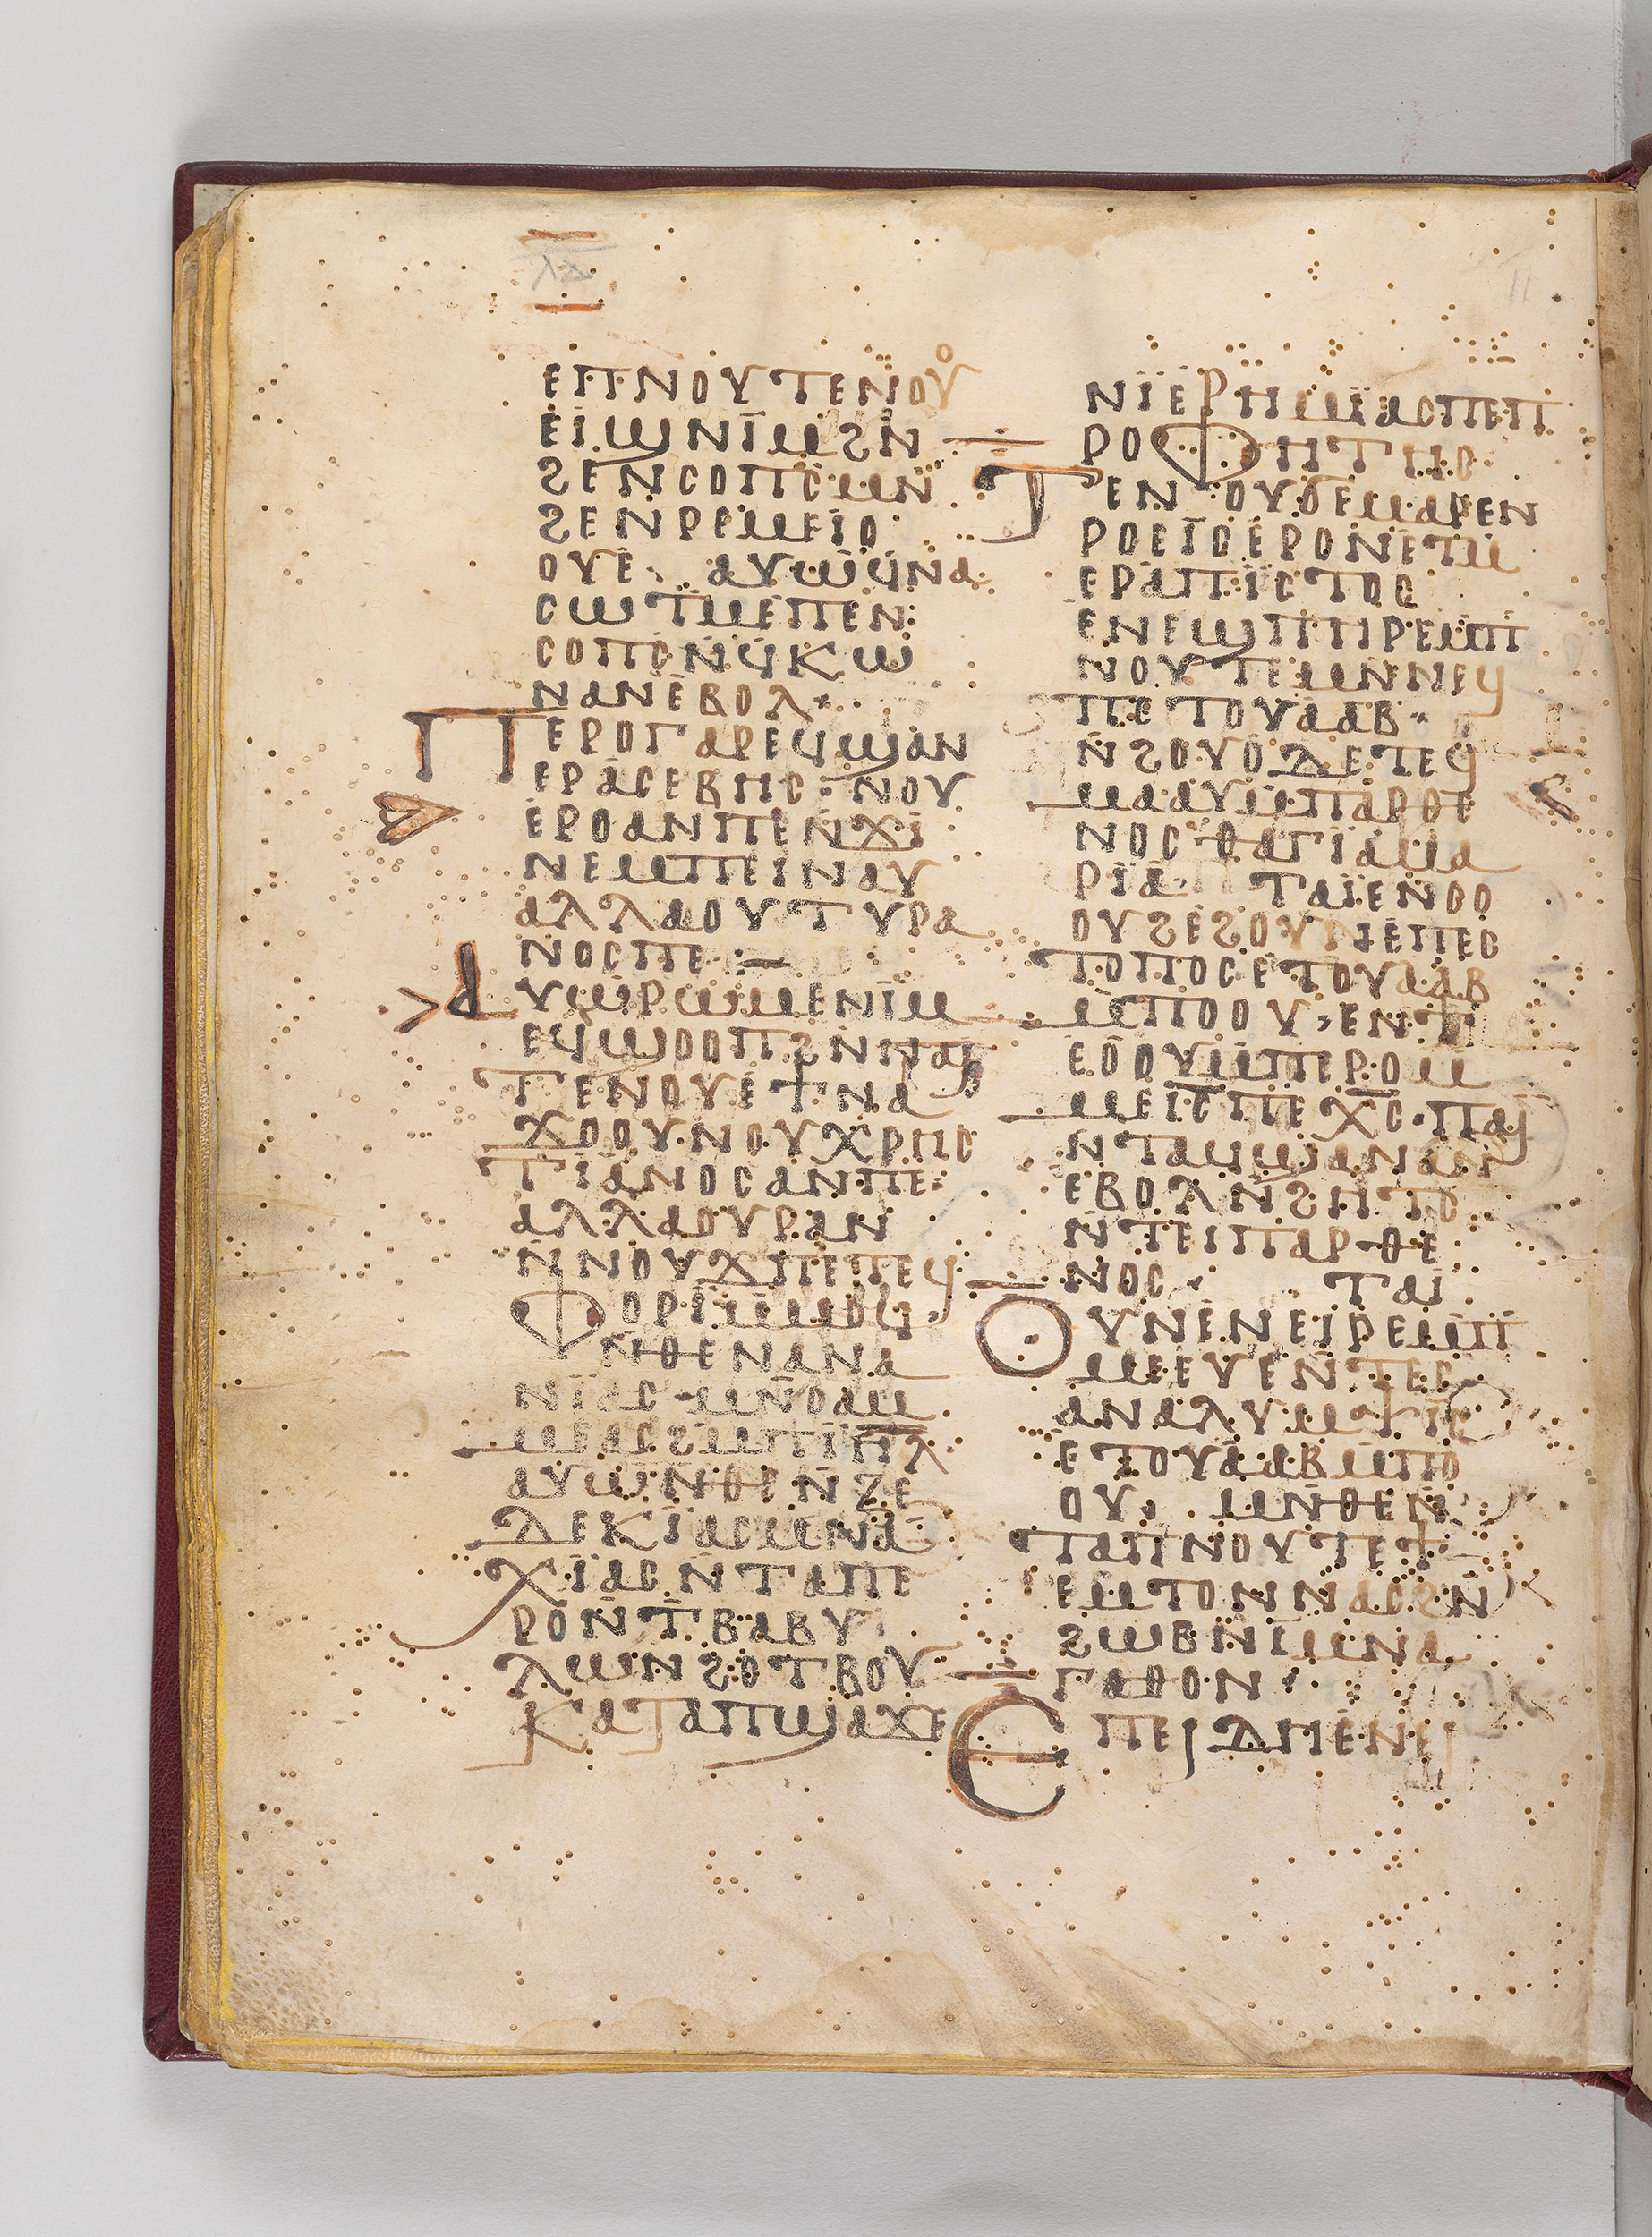 ⲗⲇ
ⲉⲡⲛⲟⲩⲧⲉⲛⲟⲩⲟ
ⲉⲓϣⲛⲓⲙϩⲛ
ϩⲉⲛⲥⲟⲡⲥⲙⲛ
ϩⲉⲛⲣⲙⲉⲓⲟ
ⲟⲩⲉ· ⲁⲩⲱϥⲛⲁ
ⲥⲱⲧⲙⲉⲡⲉⲛ
ⲥⲟⲡⲥⲛϥⲕⲱ
ⲛⲁⲛⲉⲃⲟⲗ·
ⲡⲉⲣⲟⲅⲁⲣⲉϥϣⲁⲛ
ⲉⲣⲁⲥⲉⲃⲏⲥ· ⲛⲟⲩ
ⲉⲣⲟⲁⲛⲡⲉⲛϫⲓ
ⲛⲉⲙⲡⲉⲓⲛⲁⲩ
ⲁⲗⲗⲁⲟⲩⲧⲩⲣⲁ
ⲛⲟⲥⲡⲉ:—
ⲁⲩⲱⲣⲱⲙⲉⲛⲓⲙ
ⲉϥϣⲟⲟⲡϩⲛⲛⲁϩ
ⲧⲉⲛⲟⲩⲉⲧⲛⲁ
ϫⲟⲟⲩⲛⲟⲩⲭⲣⲏⲥ
ⲧⲓⲁⲛⲟⲥⲁⲛⲡⲉ·
ⲁⲗⲗⲁⲟⲩⲣⲁⲛ
ⲛⲛⲟⲩϫⲡⲉⲧⲉϥ
ⲫⲟⲣⲓⲙⲙⲟϥ·
ⲛⲑⲉⲛⲁⲛⲁ
ⲛⲓⲁⲥ·ⲙⲛⲥⲁⲙ
ⲙⲉⲁⲥϩⲙⲡⲓⲏⲗ
ⲁⲩⲱⲛⲑⲉⲛⲍⲉ
ⲇⲉⲕⲓⲁⲥⲙⲛⲁ
ⲭⲓⲁⲥⲛⲧⲁⲡⲉ
ⲣⲟⲛⲧⲃⲁⲃⲩ
ⲗⲱⲛϩⲟⲧⲃⲟⲩ
ⲕⲁⲧⲁⲡϣⲁϫⲉ
ⲛⲓⲉⲣⲏⲙⲓⲁⲥⲡⲉⲡ
ⲣⲟⲫⲏⲧⲏⲥ·
ⲧⲉⲛⲟⲩϭⲉⲙⲁⲣⲉⲛ
ⲣⲟⲉⲓⲥⲉⲣⲟⲛⲉⲧⲙ
ⲉⲣⲁⲡⲓⲥⲧⲟⲥ
ⲉⲛⲉϣⲡⲏⲣⲉⲙⲡ
ⲛⲟⲩⲧⲉⲙⲛⲛⲉϥ
ⲡⲉⲧⲟⲩⲁⲁⲃ·
ⲛϩⲟⲩⲟⲇⲉⲧⲉϥ
ⲙⲁⲁⲩⲙⲡⲁⲣⲑⲉ
ⲛⲟⲥⲑⲁⲅⲓⲁⲙⲁ
ⲣⲓⲁ· ⲧⲁⲓⲉⲛⲥⲟ
ⲟⲩϩⲉϩⲟⲩⲛⲉⲡⲉⲥ
ⲧⲟⲡⲟⲥⲉⲧⲟⲩⲁⲁⲃ
ⲙⲡⲟⲟⲩ·ⲉⲛϯ
ⲉⲟⲟⲩⲙⲡⲉⲣⲟⲙ
ⲙⲉⲓⲥⲡⲉⲭⲥ·ⲡⲁⲓ
ⲛⲧⲁϥϣⲁⲛⲁⲛ
ⲉⲃⲟⲗⲛϩⲏⲧⲥ
ⲛⲧⲉⲓⲡⲁⲣⲑⲉ
ⲛⲟⲥ· ⲧⲁⲓ
ⲟⲩⲛⲉⲛⲉⲓⲣⲉⲙⲡ
ⲙⲉⲉⲩⲉⲛⲧⲉⲥ
ⲁⲛⲁⲗⲩⲙⲯⲓⲥ
ⲉⲧⲟⲩⲁⲁⲃⲙⲡⲟ
ⲟⲩ· ⲙⲛⲑⲉⲛ
ⲧⲁⲡⲛⲟⲩⲧⲉϯ
ⲉⲙⲧⲟⲛⲛⲁⲥϩⲛ
ϩⲱⲃⲛⲓⲙⲛⲁ
ⲅⲁⲑⲟⲛ·
ⲉⲡⲉⲓⲇⲏⲉⲛⲉⲓ